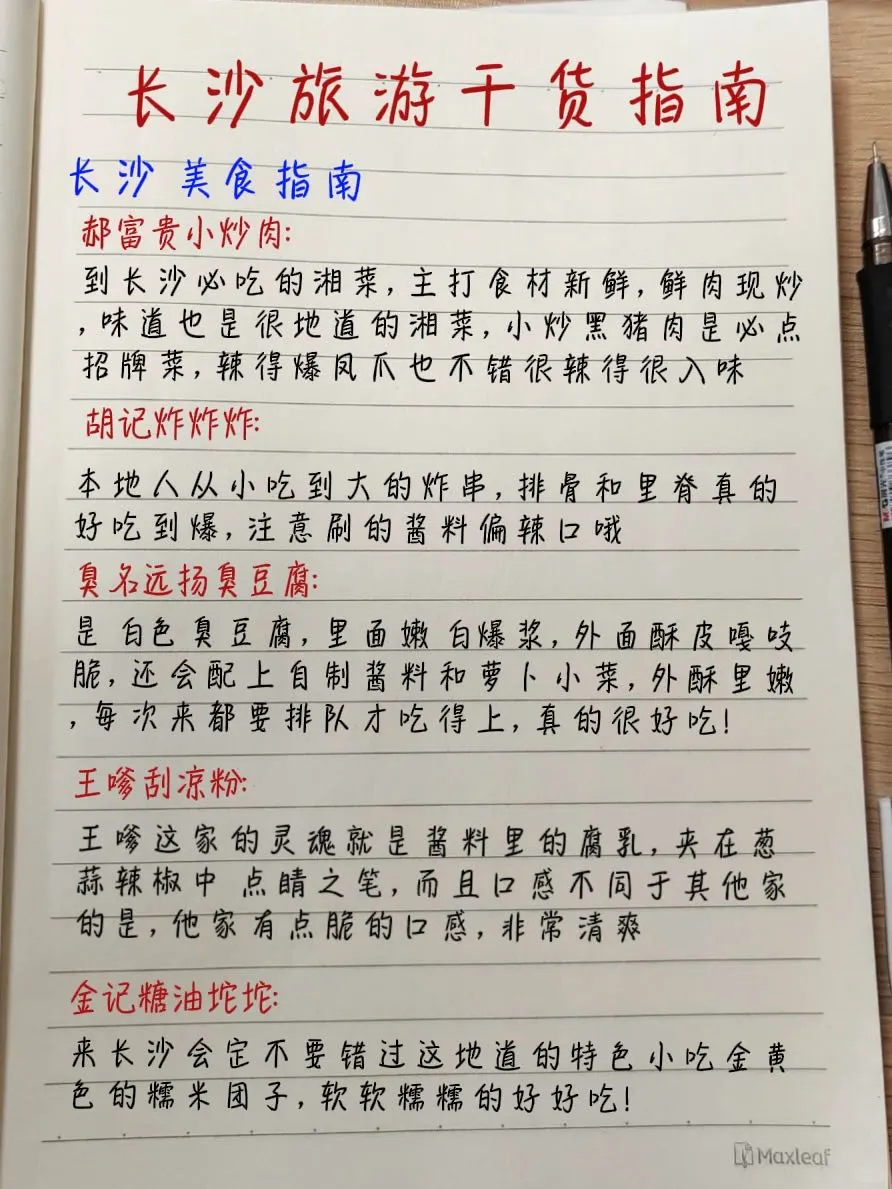 长沙旅游干货指南
长沙美食指南
郝富贵小炒肉:
到长沙必吃的湘菜,主打食材新鲜,鲜肉现炒
,味道也是很地道的湘菜,小炒黑猪肉是必点
招牌菜,辣得爆凤爪也不错很辣得很入味
胡记炸炸炸:
本地人从小吃到大的炸串,排骨和里脊真的
好吃到爆,注意刷的酱料偏辣口哦
臭名远扬臭豆腐:
是白色臭豆腐,里面嫩白爆浆,外面酥皮嘎吱
脆,还会配上自制酱料和萝卜小菜,外酥里嫩
,每次来都要排队才吃得上,真的很好吃!
王嗲刮凉粉:
王嗲这家的灵魂就是酱料里的腐乳,夹在葱
蒜辣椒中 点睛之笔,而且口感不同于其他家
的是,他家有点脆的口感,非常清爽
金记糖油坨坨:
来长沙会定不要错过这地道的特色小吃金黄
色的糯米团子,软软糯糯的好好吃!
Maxleaf